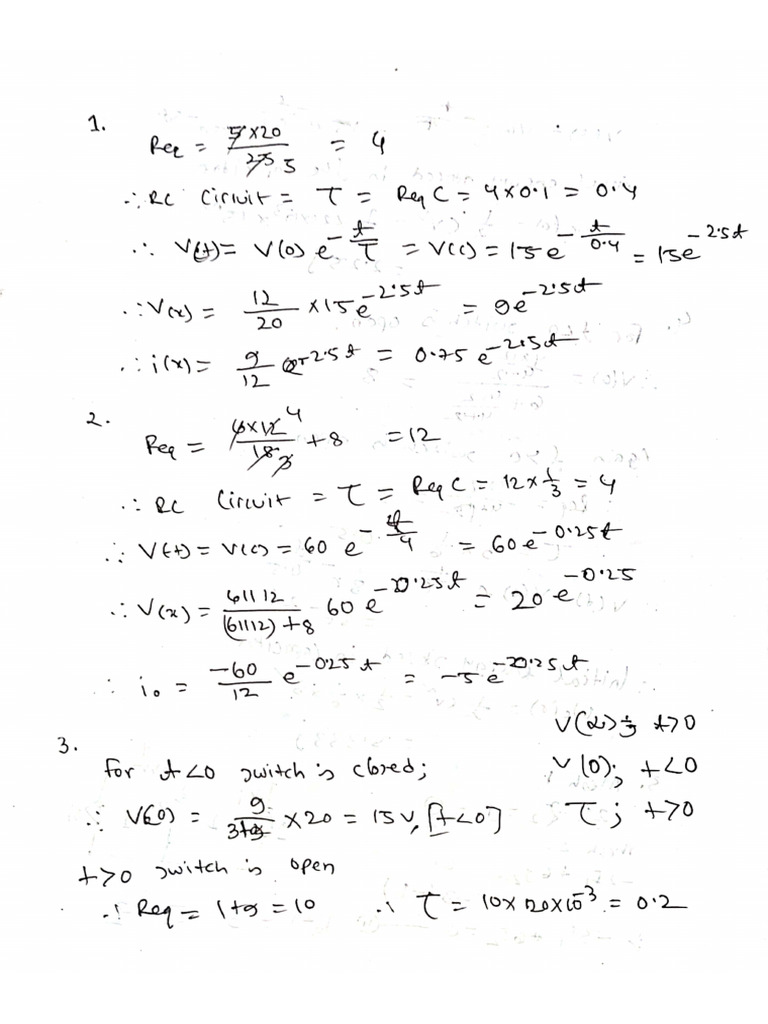 1.
Req = 5×20/25 5 = 4
∴ RC Circuit = τ = Req C = 4×0.1 = 0.4
∴ V(t) = V(0) e^-t/τ = V(c) = 15e^-t/0.4 = 15e^-2.5t
∴ V(x) = 12/20 ×15e^-2.5t = 9e^-2.5t
∴ i(x) = 9/12 e^-2.5t = 0.75 e^-2.5t
2.
Req = 6×12 4/18 3 +8 = 12
∴ RC Circuit = τ = Req C = 12×1/3 = 4
∴ V(t) = V(c) = 60 e^-t/4 = 60e^-0.25t
∴ V(x) = 6||12/(6||12)+8 60 e^-0.25t = 20 e^-0.25
∴ i₀ = -60/12 e^-0.25t = -5e^-0.25t
V(∝); t>0
3.
For t<0 switch is closed;
V(0); t<0
∴ V(0) = 9/3+9 ×20 = 15V, [t<0]
τ; t>0
t>0 switch is open
∴ Req = 1+9 = 10 ∴ τ = 10×20×10^-3 = 0.2